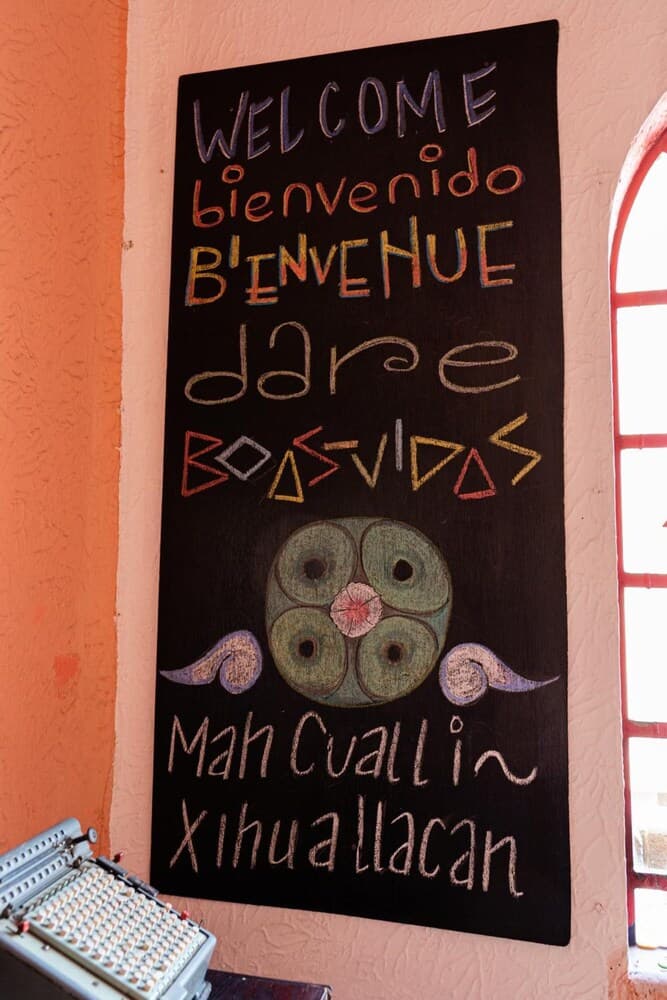 WELCOME
bienvenido
BIENVENUE
dare
BOAS-VIDAS
Mah Cualli~
Xihuallacan